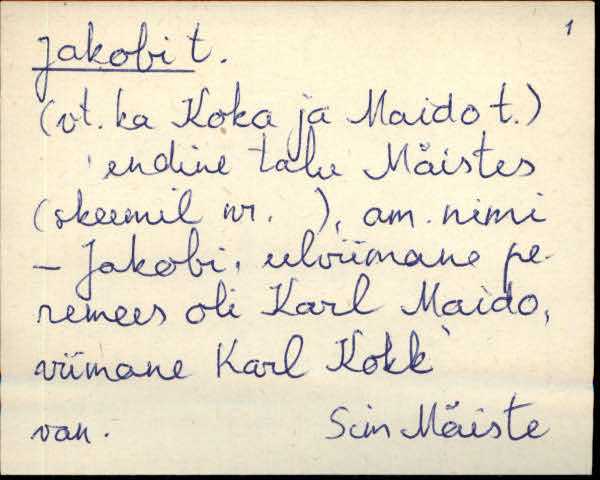 1
Jakobi t.
(vt. ka Koka ja Maido t.)
endine talu Mäistes
(skeemil nr. ), am. nimi
- Jakobi, eelviimane pe-
remees oli Karl Maido,
viimane Karl Kokk
van. Sim Mäiste